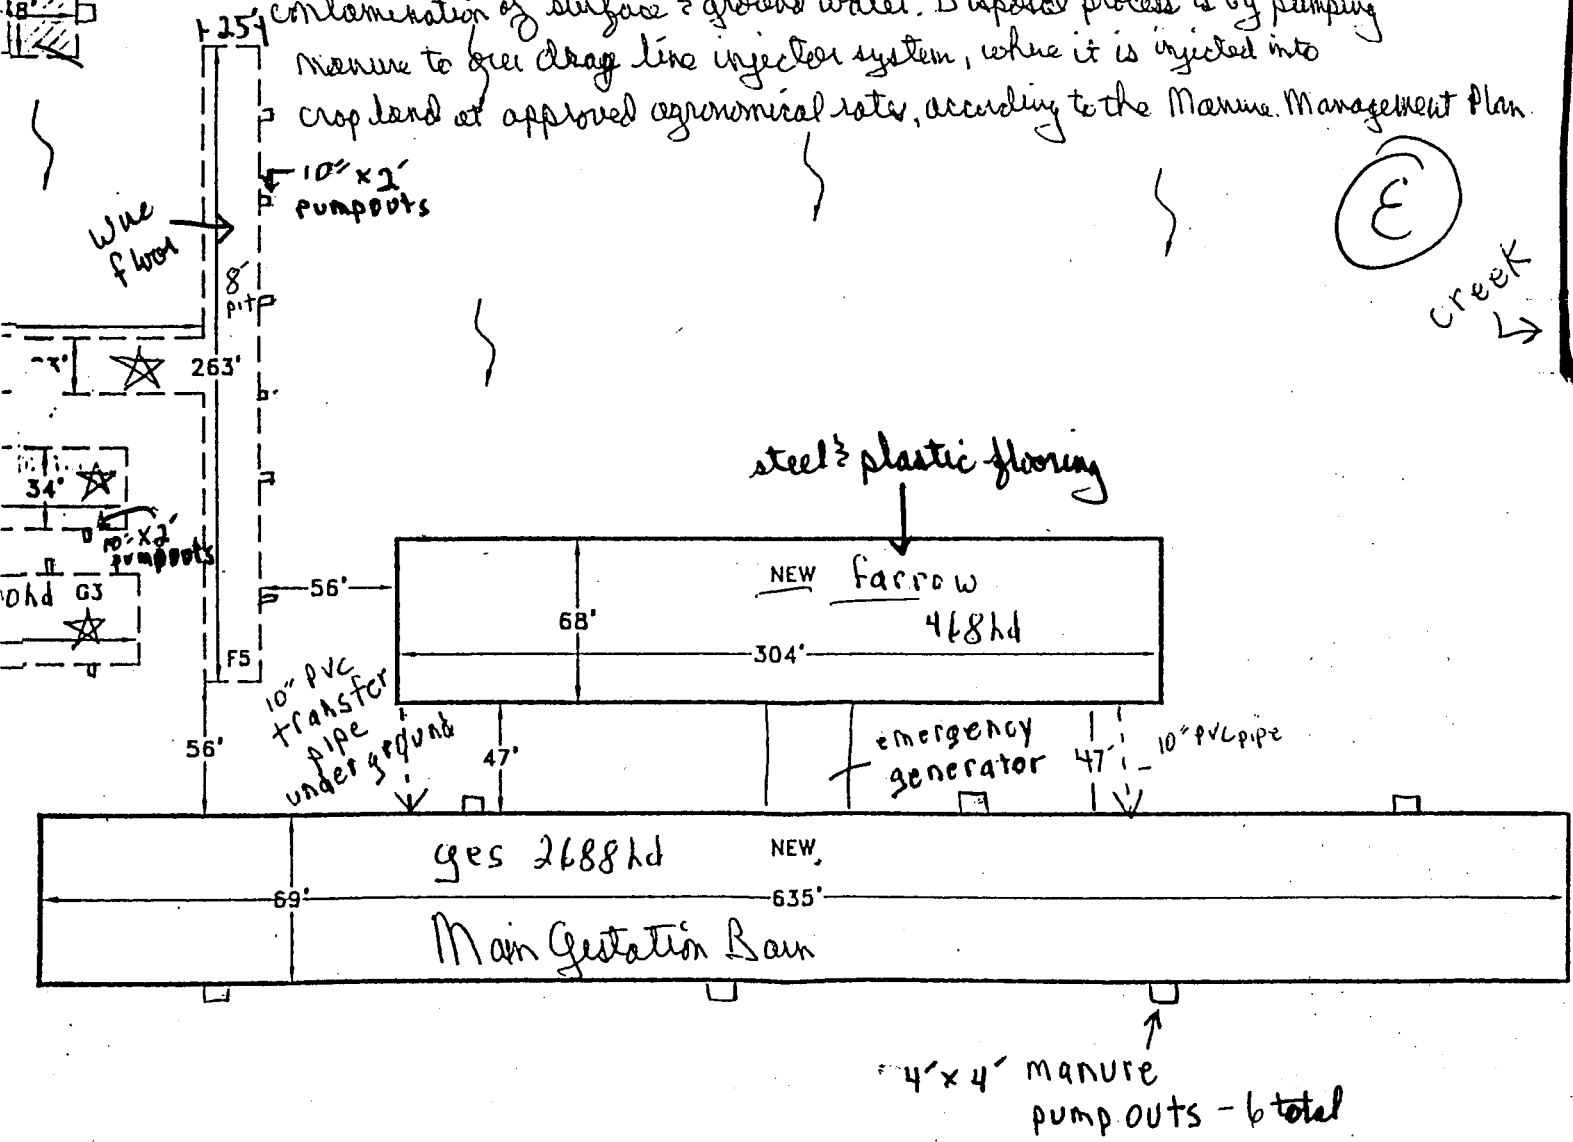 8'
25'
contamination of surface & ground water. Disposal process is by pumping
manure to our drag line injector system, where it is injected into
crop land at approved agronomical rates, according to the Manure Management Plan
10" x 2'
pumpouts
E
wire
floor
creek
8'
pit
263'
steel & plastic flooring
34'
10" x 2'
pumpouts
0hd G3
56'
NEW Farrow
468hd
68'
304'
F5
10" PVC
transfer
pipe
under ground
56'
47'
emergency
generator
47'
10" PVC pipe
ges 2688hd
NEW
69'
635'
Main Gestation Barn
4' x 4' manure
pump outs - 6 total